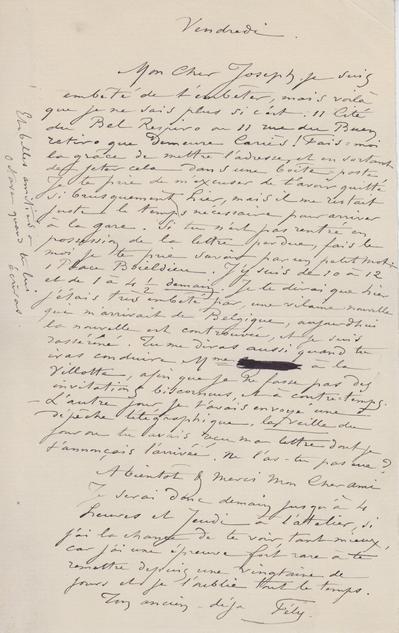 Vendredi.
Mon Cher Joseph, je suis
embêté de t'embêter, mais voilà
que je ne sais plus si c'est : 11 Cité
du Bel Respiro ou 11 rue du Buen
retiro que Demeure Cariès ! Fais-moi
la grâce de mettre l'adresse, et en sortant
de jeter cela dans une boîte poste
je te prie de m'excuser de t'avoir quitté
si brusquement hier, mais il me restait
juste le temps nécessaire pour arriver
à la gare. Si tu n'est pas rentré en
possession de la lettre perdue, fais le
moi je te prie savoir par un petit mot
1 Place Boieldieu. J'y suis de 10 à 12
et de 1 à 4 h demain. Je te dirai que hier
j'étais très embêté par une vilaine nouvelle
qui m'arrivait de Belgique, aujourd'hui
la nouvelle est controuvée, et je suis
rasséréné. Tu me diras aussi quand tu
iras conduire Mme à la
Villotte, afin que je ne fasse pas des
invitations biscornues, et à contretemps.
L'autre jour je t'avais envoyé une
dépêche télégraphique, la veille du
jour où tu avais reçu ma lettre dont je
t'annonçais l'arrivée. Ne l'as-tu pas eue ?
A bientôt & merci Mon Cher ami
Je serai donc demain jusqu'à 4
heures et Jeudi à l'atelier, si
j'ai la chance de te voir tant mieux,
car j'ai une épreuve fort rare à te
remettre depuis une vingtaine de
jours et je l'oublie tout le temps.
Ton ancien déjà Fély
Et belles amitiés à
quand tu lui
écriras.